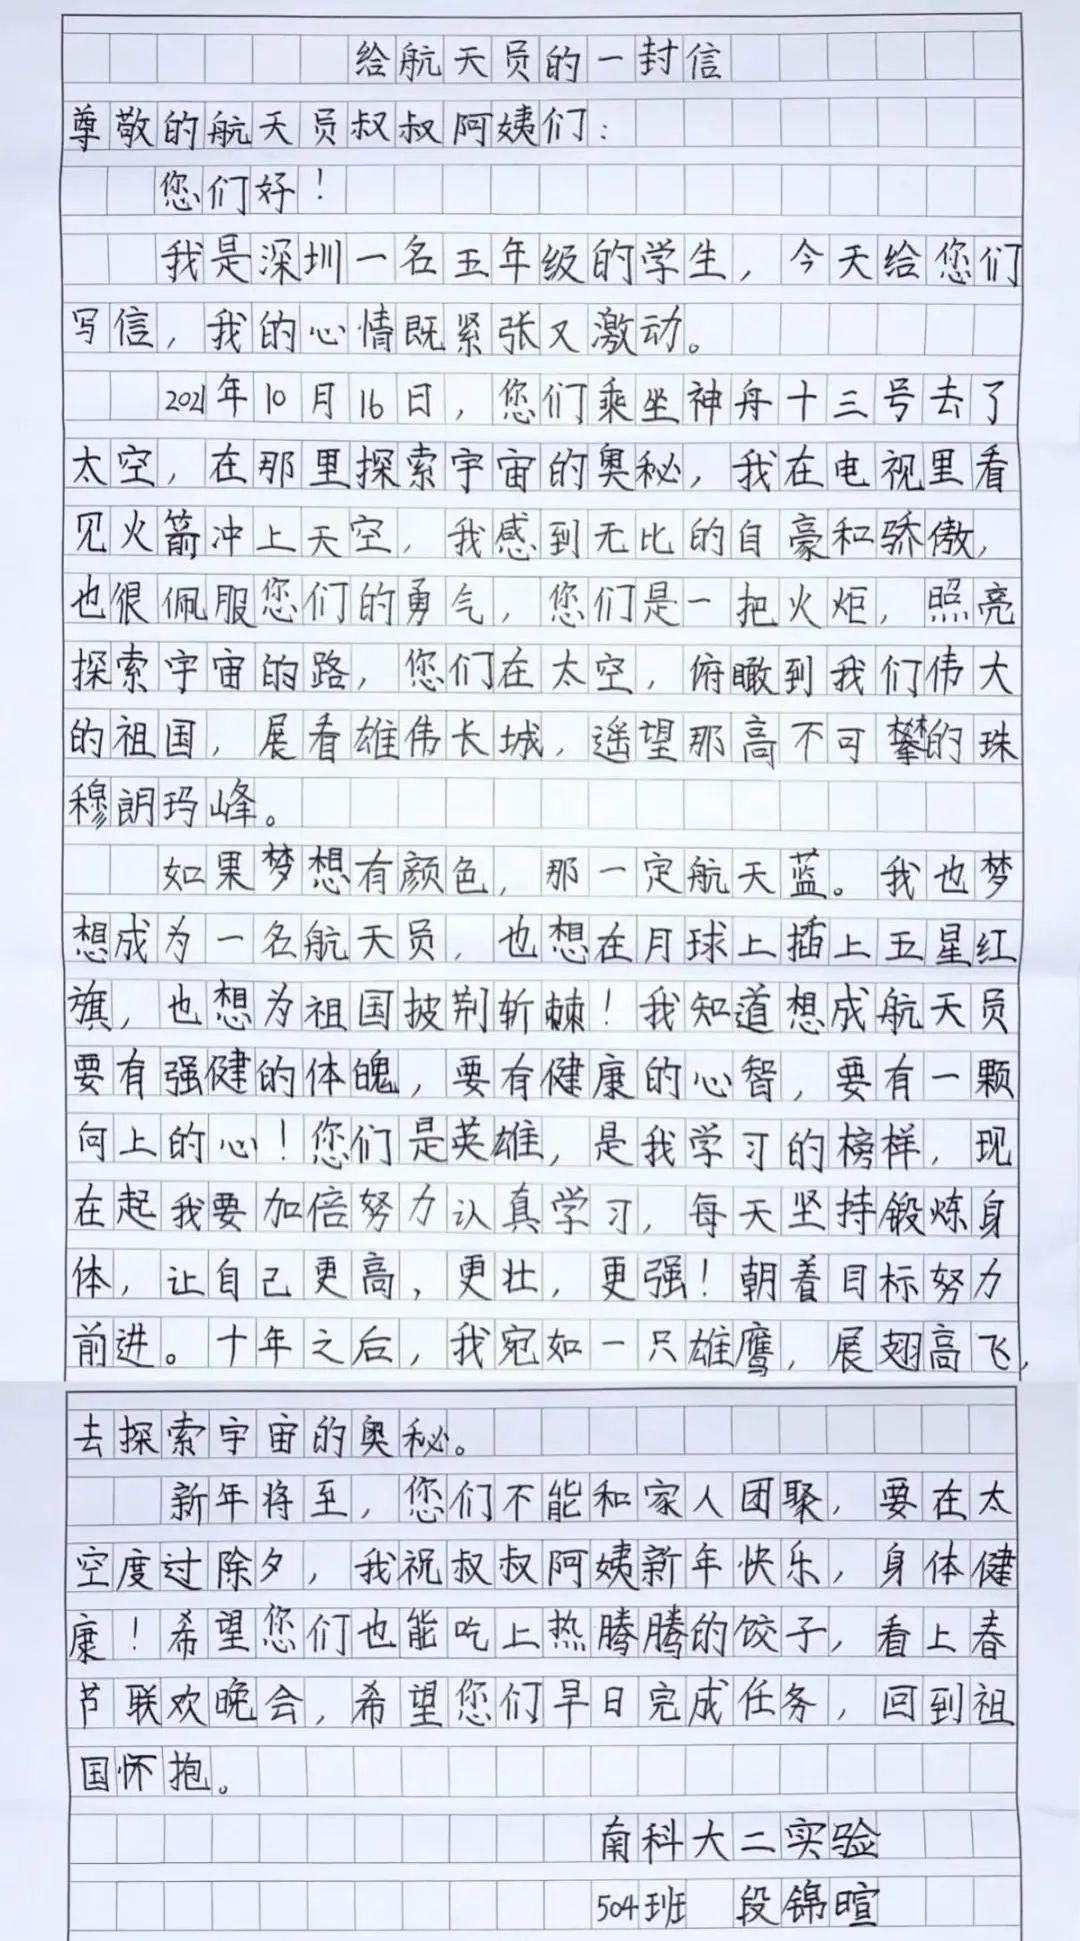 给航天员的一封信
尊敬的航天员叔叔阿姨们：
您们好！
我是深圳一名五年级的学生，今天给您们
写信，我的心情既紧张又激动。
2021年10月16日，您们乘坐神舟十三号去了
太空，在那里探索宇宙的奥秘，我在电视里看
见火箭冲上天空，我感到无比的自豪和骄傲，
也很佩服您们的勇气，您们是一把火炬，照亮
探索宇宙的路，您们在太空，俯瞰到我们伟大
的祖国，展看雄伟长城，遥望那高不可攀的珠
穆朗玛峰。
如果梦想有颜色，那一定航天蓝。我也梦
想成为一名航天员，也想在月球上插上五星红
旗，也想为祖国披荆斩棘！我知道想成航天员
要有强健的体魄，要有健康的心智，要有一颗
向上的心！您们是英雄，是我学习的榜样，现
在起我要加倍努力认真学习，每天坚持锻炼身
体，让自己更高，更壮，更强！朝着目标努力
前进。十年之后，我宛如一只雄鹰，展翅高飞，
去探索宇宙的奥秘。
新年将至，您们不能和家人团聚，要在太
空度过除夕，我祝叔叔阿姨新年快乐，身体健
康！希望您们也能吃上热腾腾的饺子，看上春
节联欢晚会，希望您们早日完成任务，回到祖
国怀抱。
南科大二实验
504班 段锦暄